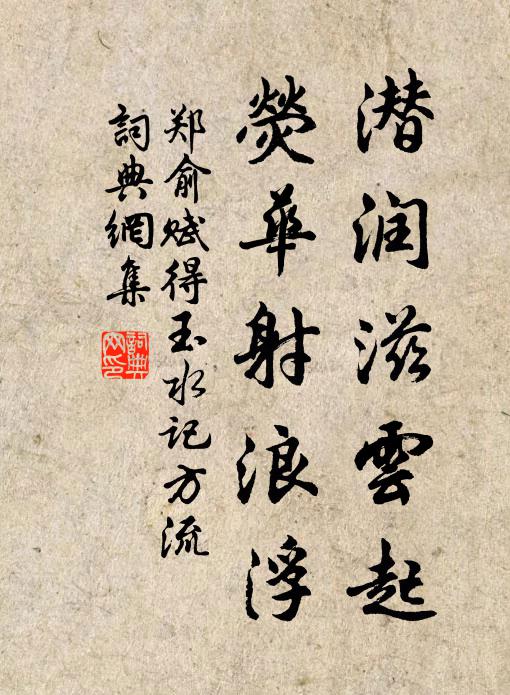 潜润滋雲起
熒華射浪浮
郑俞赋得玉水记方流
詞典網集
詞典網印